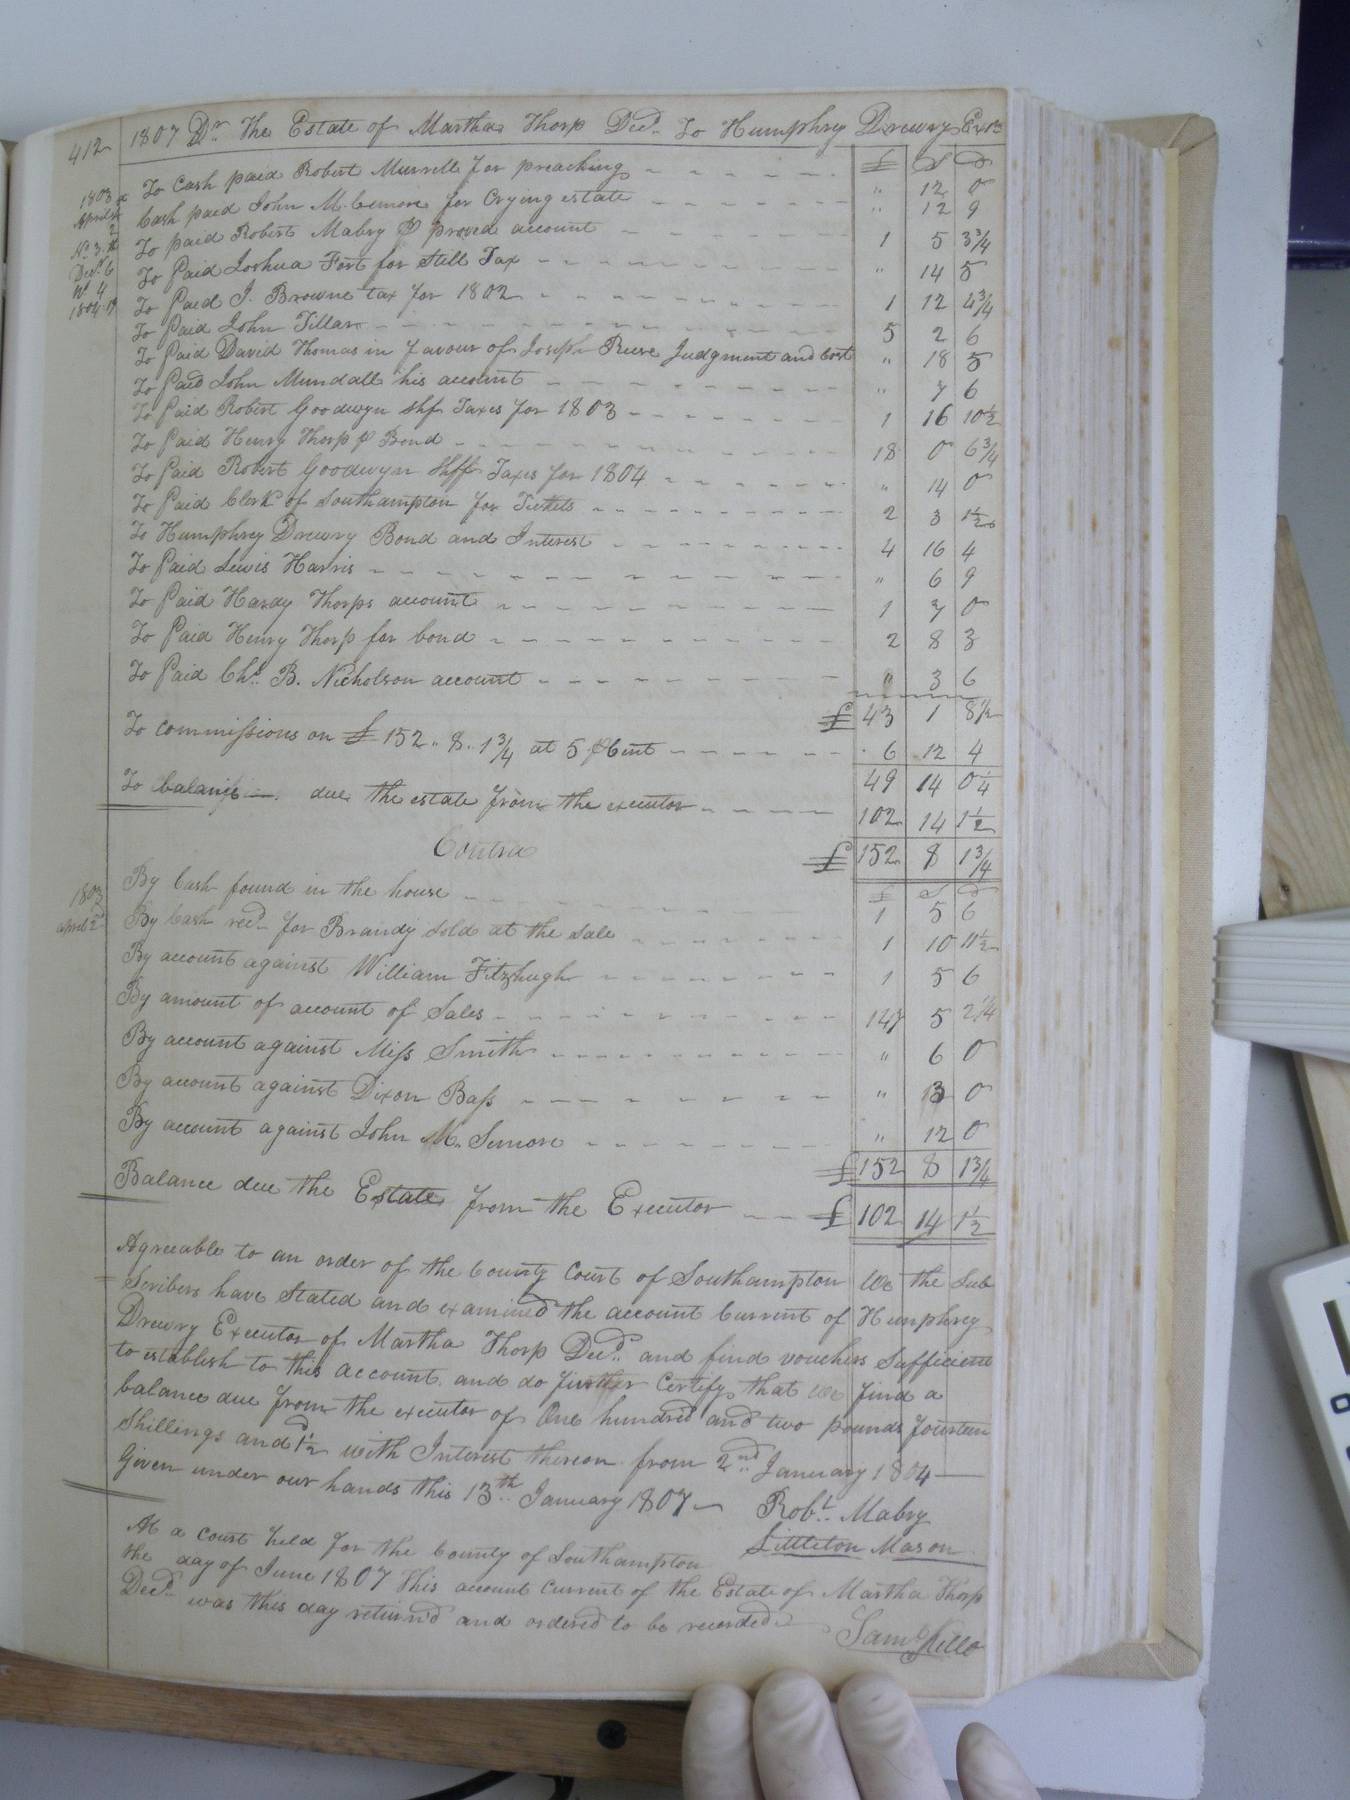 412 1807 Dr. The Estate of Martha Thorp Decd. To Humphrey Drewry Exr.
£ S D
1803 April To Cash paid Robert Murrell for preaching " 12 0
Cash paid John M. Lemore for Crying estate " 12 9
To paid Robert Mabry proved account 1 5 3 3/4
To Paid Joshua Fort for Still Tax " 14 5
To Paid J. Browne tax for 1802 1 12 4 3/4
To Paid John Tillar 5 2 6
To Paid David Thomas in favour of Joseph Reese Judgment and Cost " 18 5
To Paid John Mundall his account " 7 6
To Paid Robert Goodwyn Shf Taxes for 1803 1 16 10 1/2
To Paid Henry Thorp p Bond 18 0 6 3/4
To Paid Robert Goodwyn Shff Taxes for 1804 " 14 0
To Paid Clerk of Southampton for Tickets 2 3 1 1/2
To Humphrey Drewry Bond and Interest 4 16 4
To Paid Lewis Harris " 6 9
To Paid Hardy Thorps account 1 7 0
To Paid Henry Thorp for bond 2 8 3
To Paid Chs. B. Nicholson account " 3 6
£ 43 1 8 1/2
To commissions on £152 " 8 " 1 3/4 at 5 p Cent 6 12 4
49 14 0 1/4
To balance due the estate from the executor 102 14 1 1/2
£ 152 8 1 3/4
Contra
£ S D
1803 april 2d By Cash found in the house 1 5 6
By Cash recd. for Brandy sold at the sale 1 10 11 1/2
By account against William Fitzhugh 1 5 6
By amount of account of Sales 147 5 2 1/4
By account against Miss Smith " 6 0
By account against Dixon Bass " 13 0
By account against John M. Lemore " 12 0
£ 152 8 1 3/4
Balance due the Estate from the Executor £ 102 14 1 1/2
Agreeable to an order of the County Court of Southampton We the Sub
= Scribers have Stated and examined the account Current of Humphrey
Drewry Executor of Martha Thorp Decd. and find vouchers Sufficient
to establish to this account and do further Certify that we find a
balance due from the executor of One hundred and two pounds fourteen
Shillings and 1 1/2 d with Interest thereon from 2nd January 1804
Given under our hands this 13th January 1807
Robt. Mabry
Littleton Mason
At a Court held for the County of Southampton
the day of June 1807 This account Current of the Estate of Martha Thorp
Decd. was this day return'd and ordered to be recorded
Saml Kello